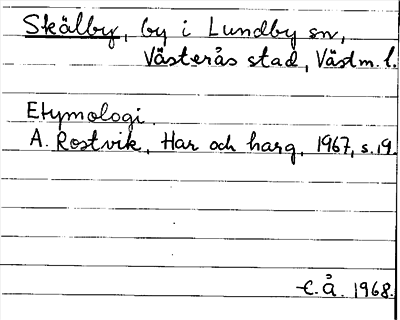 Skälby, by i Lundby sn,
Västerås stad, Västm. l.
Etymologi.
A. Rostvik, Har och harg, 1967, s. 19.
C.Å. 1968.